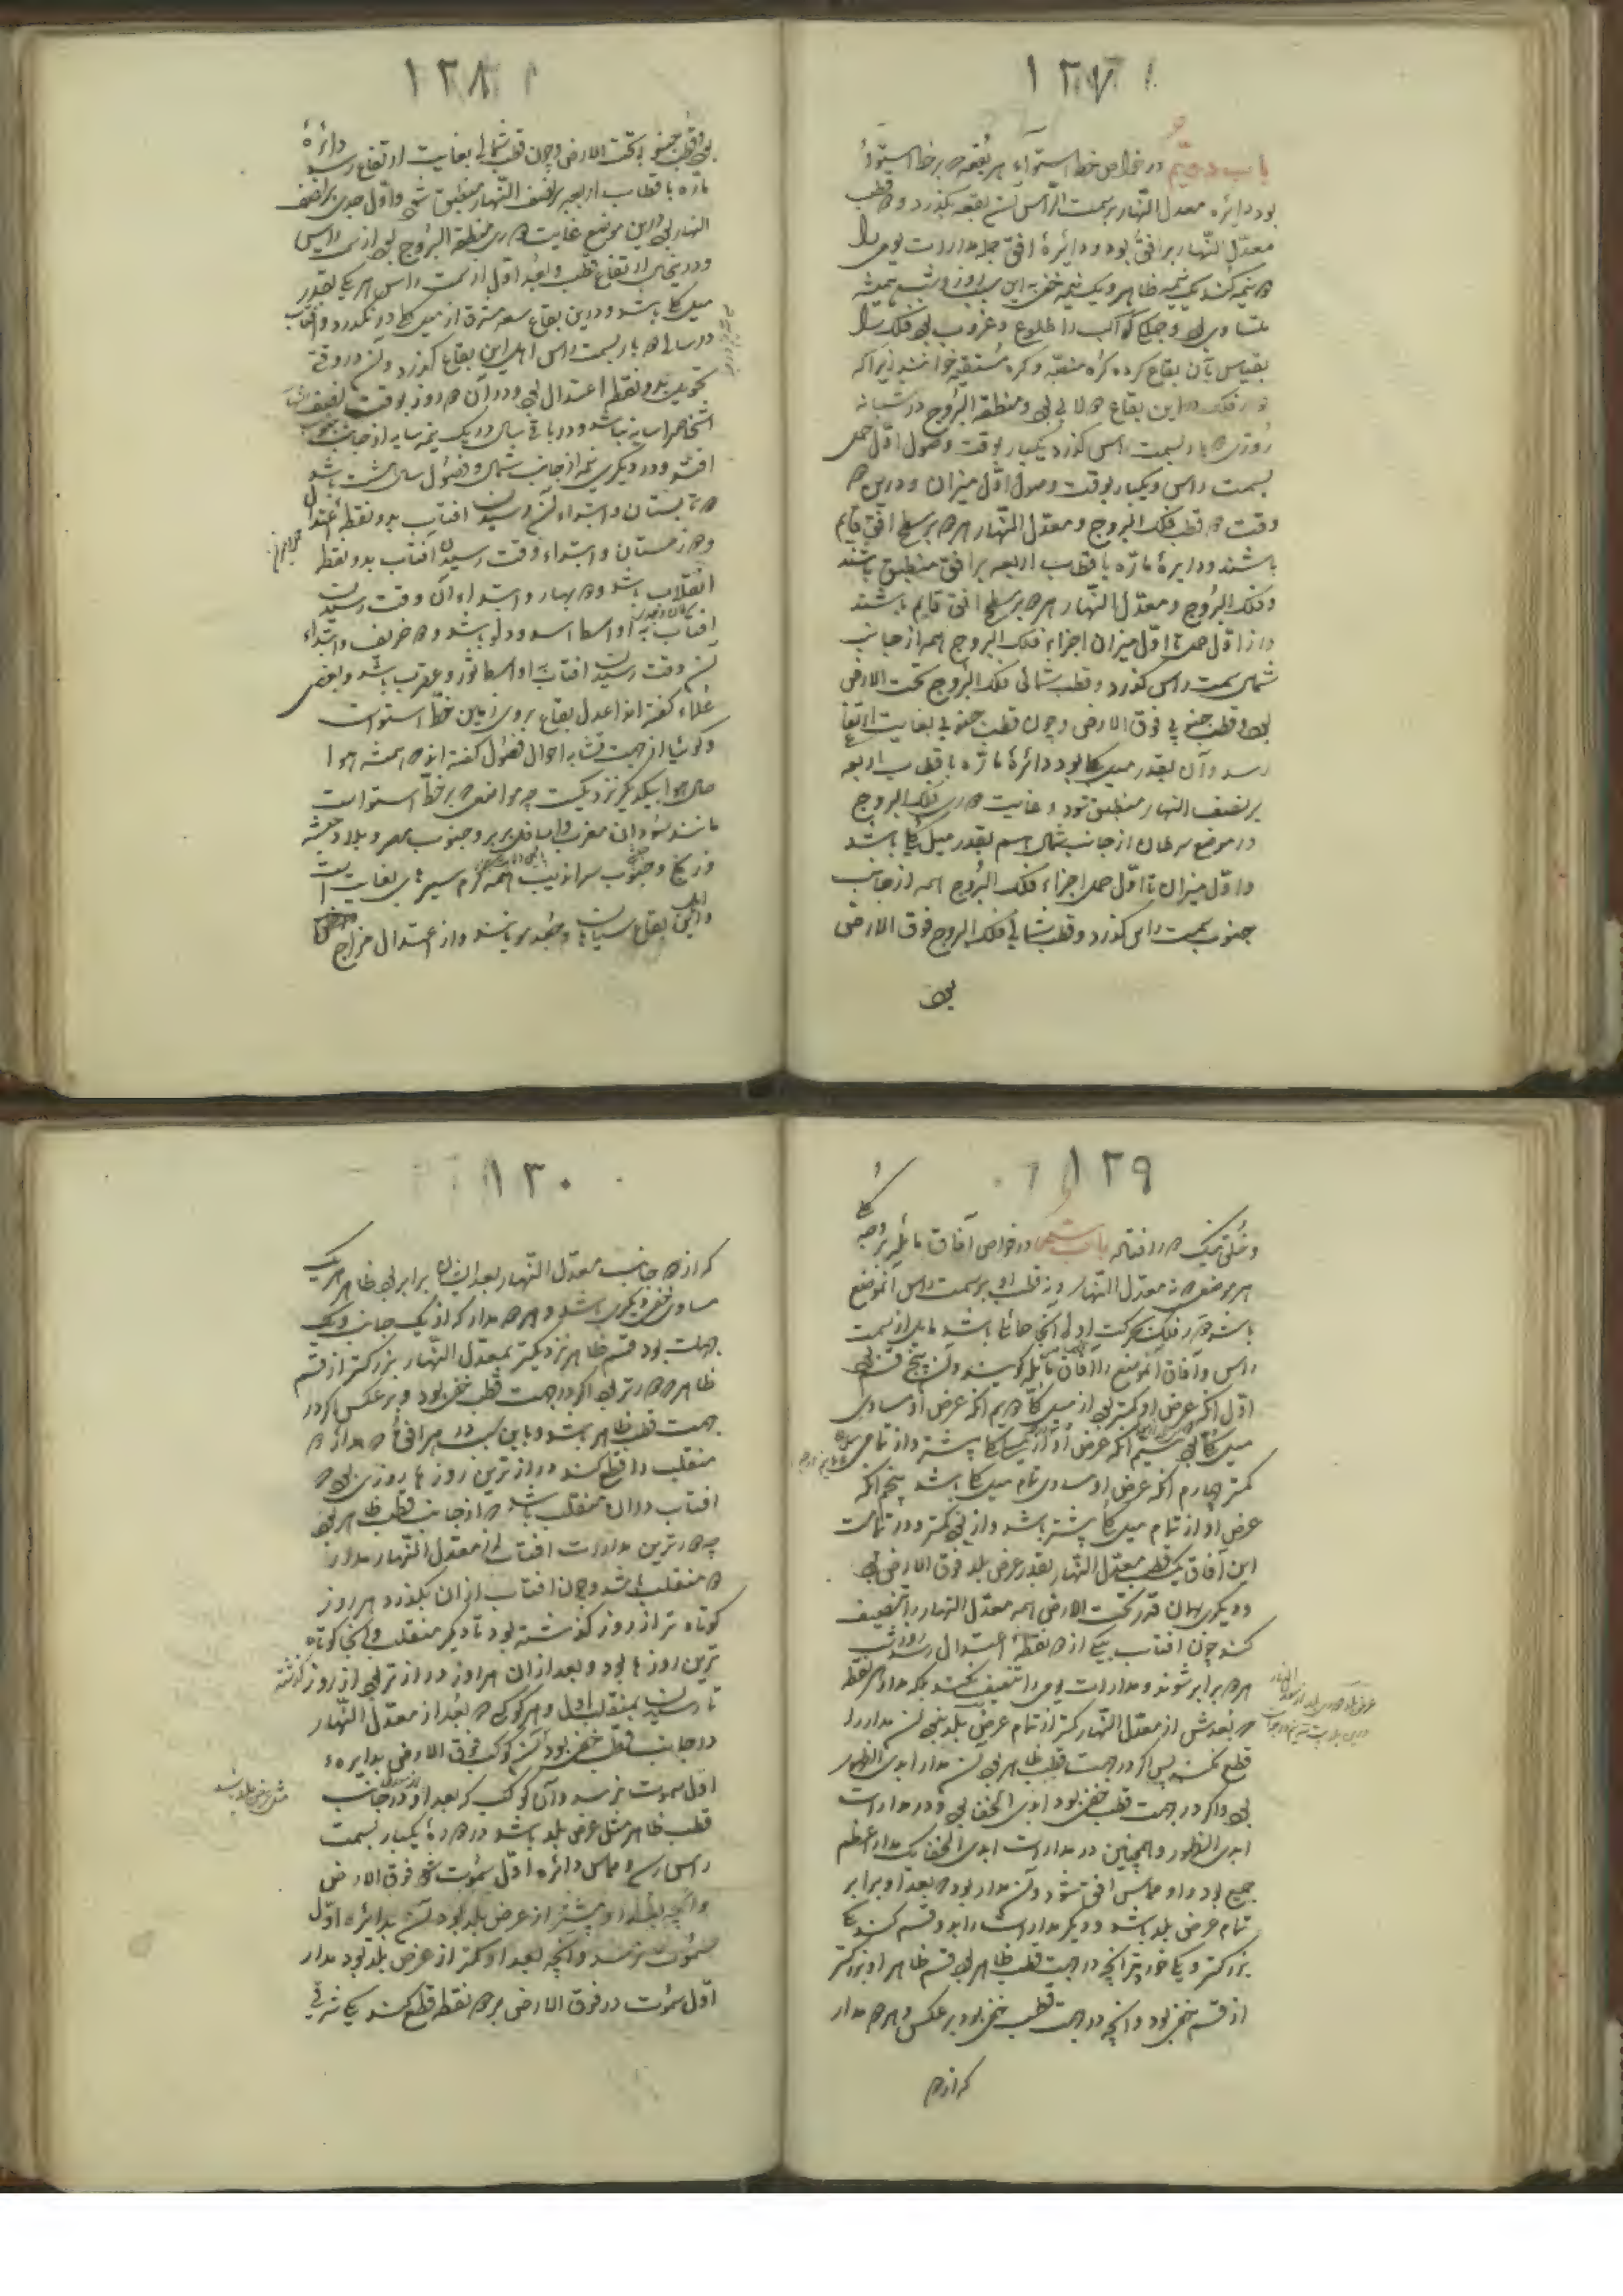 ١٢٧
باب دویم در خواص خط استواء هر بقعه که بر خط استوا
بود دایره معدل النهار بر سمت الرأس آن بقعه بگذرد و دو قطب
معدل النهار بر افق بود و دائرهٔ افق جمله مدارات یومی را
دو نیمه کند یک نیمه ظاهر و یک نیمه خفی به این سبب روز و شب همیشه
متساوی بود و جمله کواکب را طلوع و غروب بود و فلک را
بقیاس بآن بقاع کرده کره منتصبه و کره مستقیمه خوانند زیرا که
دور فلک در این بقاع دولابی بود و منطقة البروج در شبانه
روزی دو بار بسمت راس گذرد یکبار بوقت وصول اول حمل
بسمت راس و یکبار بوقت وصول اول میزان و درین دو
وقت دو قطب فلک البروج و معدل النهار هر دو بر سطح افق قایم
باشند و دایرهٔ مارّه باقطاب اربعه بر افق منطبق باشد
و فلک البروج و معدل النهار هر دو بر سطح افق قایم باشند
و از اول حمل تا اول میزان اجزاء فلک البروج همه از جانب
شمال سمت راس گذرد و قطب شمالی فلک البروج تحت الارض
بود و قطب جنوبی فوق الارض و چون قطب جنوبی بغایت ارتفاع
رسد و آن بقدر میل کلی بود دائرهٔ مارّه باقطاب اربعه
بر نصف النهار منطبق شود و غایت دوری فلک البروج
در موضع سرطان از جانب شمال هم بقدر میل کلی باشد
و اول میزان تا اول حمل اجزاء فلک البروج همه از جانب
جنوب سمت راس گذرد و قطب شمالی فلک البروج فوق الارض
بود
١٢٨
بود و قطب جنوبی تحت الارض و چون قطب شمالی بغایت ارتفاع رسد دائرهٔ
مارّه باقطاب اربعه بر نصف النهار منطبق شود و اول جدی بر نصف
النهار بود و درین موضع غایت دوری منطقة البروج بود از سمت راس
و در نیحال ارتفاع قطب و بعد اول از سمت راس هر یک بقدر
میل کلی باشد و درین بقاع سعه مشرق از میل کلی در نگذرد و آفتاب
در سالی دو بار بسمت راس اهل این بقاع گذرد و آن در وقت
تحویل بدو نقطه اعتدال بود و در آن دو روز بوقت نصف النهار
اشخاص را سایه نباشد و در باقی سال در یک نیمه سایه از جانب جنوب
افتد و در دیگری نیمه از جانب شمال و فصول سال هشت باشد
دو تابستان و ابتداء آن رسیدن آفتاب بدو نقطه اعتدال
و دو زمستان و ابتداء وقت رسیدن آفتاب بدو نقطه
انقلاب باشد و دو بهار و ابتداء آن وقت رسیدن
آفتاب به اواسط اسد و دلو باشد و دو خریف و ابتداء
آن وقت رسیدن آفتاب به اواسط ثور و عقرب باشد و بعضی
علماء گفته اند اعدل بقاع بروی زمین خط استواست
و گوئیا از جهت تشابه احوال فصول گفته اند که همیشه هوا
حال هوا بیکدیگر نزدیکست چه مواضعی که بر خط استواست
مانند سودان مغرب و اسافل بربر و جنوب مصر و بلاد حبشه
و زنج و جنوب سراندیب همه گرم سیرهای بغایت است
و اهل این بقاع سیاهان و جعد مو باشند و از اعتدال مزاج
١٢٩
و خلق نیک دور افتاده باب سیم در خواص آفاق مائله بر وجه کلی
هر موضعی که نه معدل النهار و نه قطب او بر سمت راس آنموضع
باشد دور فلک بحرکت اولی آنجا حمائلی باشد مایل از سمت
راس و آفاق آنموضع را آفاق مایله گویند و آن پنج قسم بود
اول آنکه عرض او کمتر بود از میل کلی دویم آنکه عرض او مساوی
میل کلی بود سیم آنکه عرض او از میل کلی بیشتر و از تمامی
کمتر چهارم آنکه عرض او مساوی تمام میل کلی باشد پنجم آنکه
عرض او از تمام میل کلی بیشتر باشد و از ... کمتر و در تمامت
این آفاق یک قطب معدل النهار بقدر عرض بلد فوق الارض بود
و دیگری بهمان قدر تحت الارض همه معدل النهار را تنصیف
کند چون آفتاب بیکی از دو نقطهٔ اعتدال رسد روز و شب
هر دو برابر شوند و مدارات یومی را تنصیف نکند بلکه مدار هر نقطه
که بعدش از معدل النهار کمتر از تمام عرض بلد نبود آن مدار را
قطع نکند پس اگر در جهت قطب ظاهر بود آن مدار ابدی الظهور
بود و اگر در جهت قطب خفی بود ابدی الخفا بود و در مدارات
ابدی الظهور و همچنین در مدارات ابدی الخفا یک مدار اعظم
جمیع بود و او مماس افق شود و آن مدار بود که بعد او برابر
تمام عرض بلد باشد و دیگر مدارات را بدو قسم کند یکی
بزرگتر و یکی خوردتر آنچه در جهت قطب ظاهر بود قسم ظاهر او بزرگتر
از قسم خفی بود و آنچه در جهت قطب خفی بود بر عکس و هر دو مدار
که از دو
١٣٠
که از دو جانب معدل النهار بعد ایشان برابر بود ظاهر هر یک
مساوی خفی دیگری باشد و هر دو مدار که از یک جانب و یک
جهت بود قسم ظاهر نزدیکتر بمعدل النهار بزرگتر از قسم
ظاهر دورتر بود اگر در جهت قطب خفی بود و بر عکس اگر در
جهت قطب ظاهر باشد و باین سبب در هر افقی که مدار دو
منقلب را قطع کند درازترین روزها روزی بود که
آفتاب در آن منقلب باشد که از جانب قطب ظاهر بود
چه دورترین مدارات آفتاب از معدل النهار مدار
دو منقلب باشد و چون آفتاب از آن بگذرد هر روز
کوتاه تر از روز گذشته بود تا دیگر منقلب و آنجا کوتاه
ترین روزها بود و بعد از آن هر روز درازتر بود از روز گذشته
تا رسیدن بمنقلب اول و هر کوکبی که بعد از معدل النهار
در جانب قطب خفی بود آن کوکب فوق الارض بدایرهٔ
اول سموت نرسد و آن کوکب که بعد او در جانب
قطب ظاهر مثل عرض بلد باشد در دورهٔ یکبار بسمت
راس رسد و مماس دائره اول سموت شود فوق الارض
و آنچه بعد او بیشتر از عرض بلد بود آن بدائره اول
سموت نرسد و آنچه بعد او کمتر از عرض بلد بود مدار
اول سموت در فوق الارض بر دو نقطه قطع کند یکی شرقی